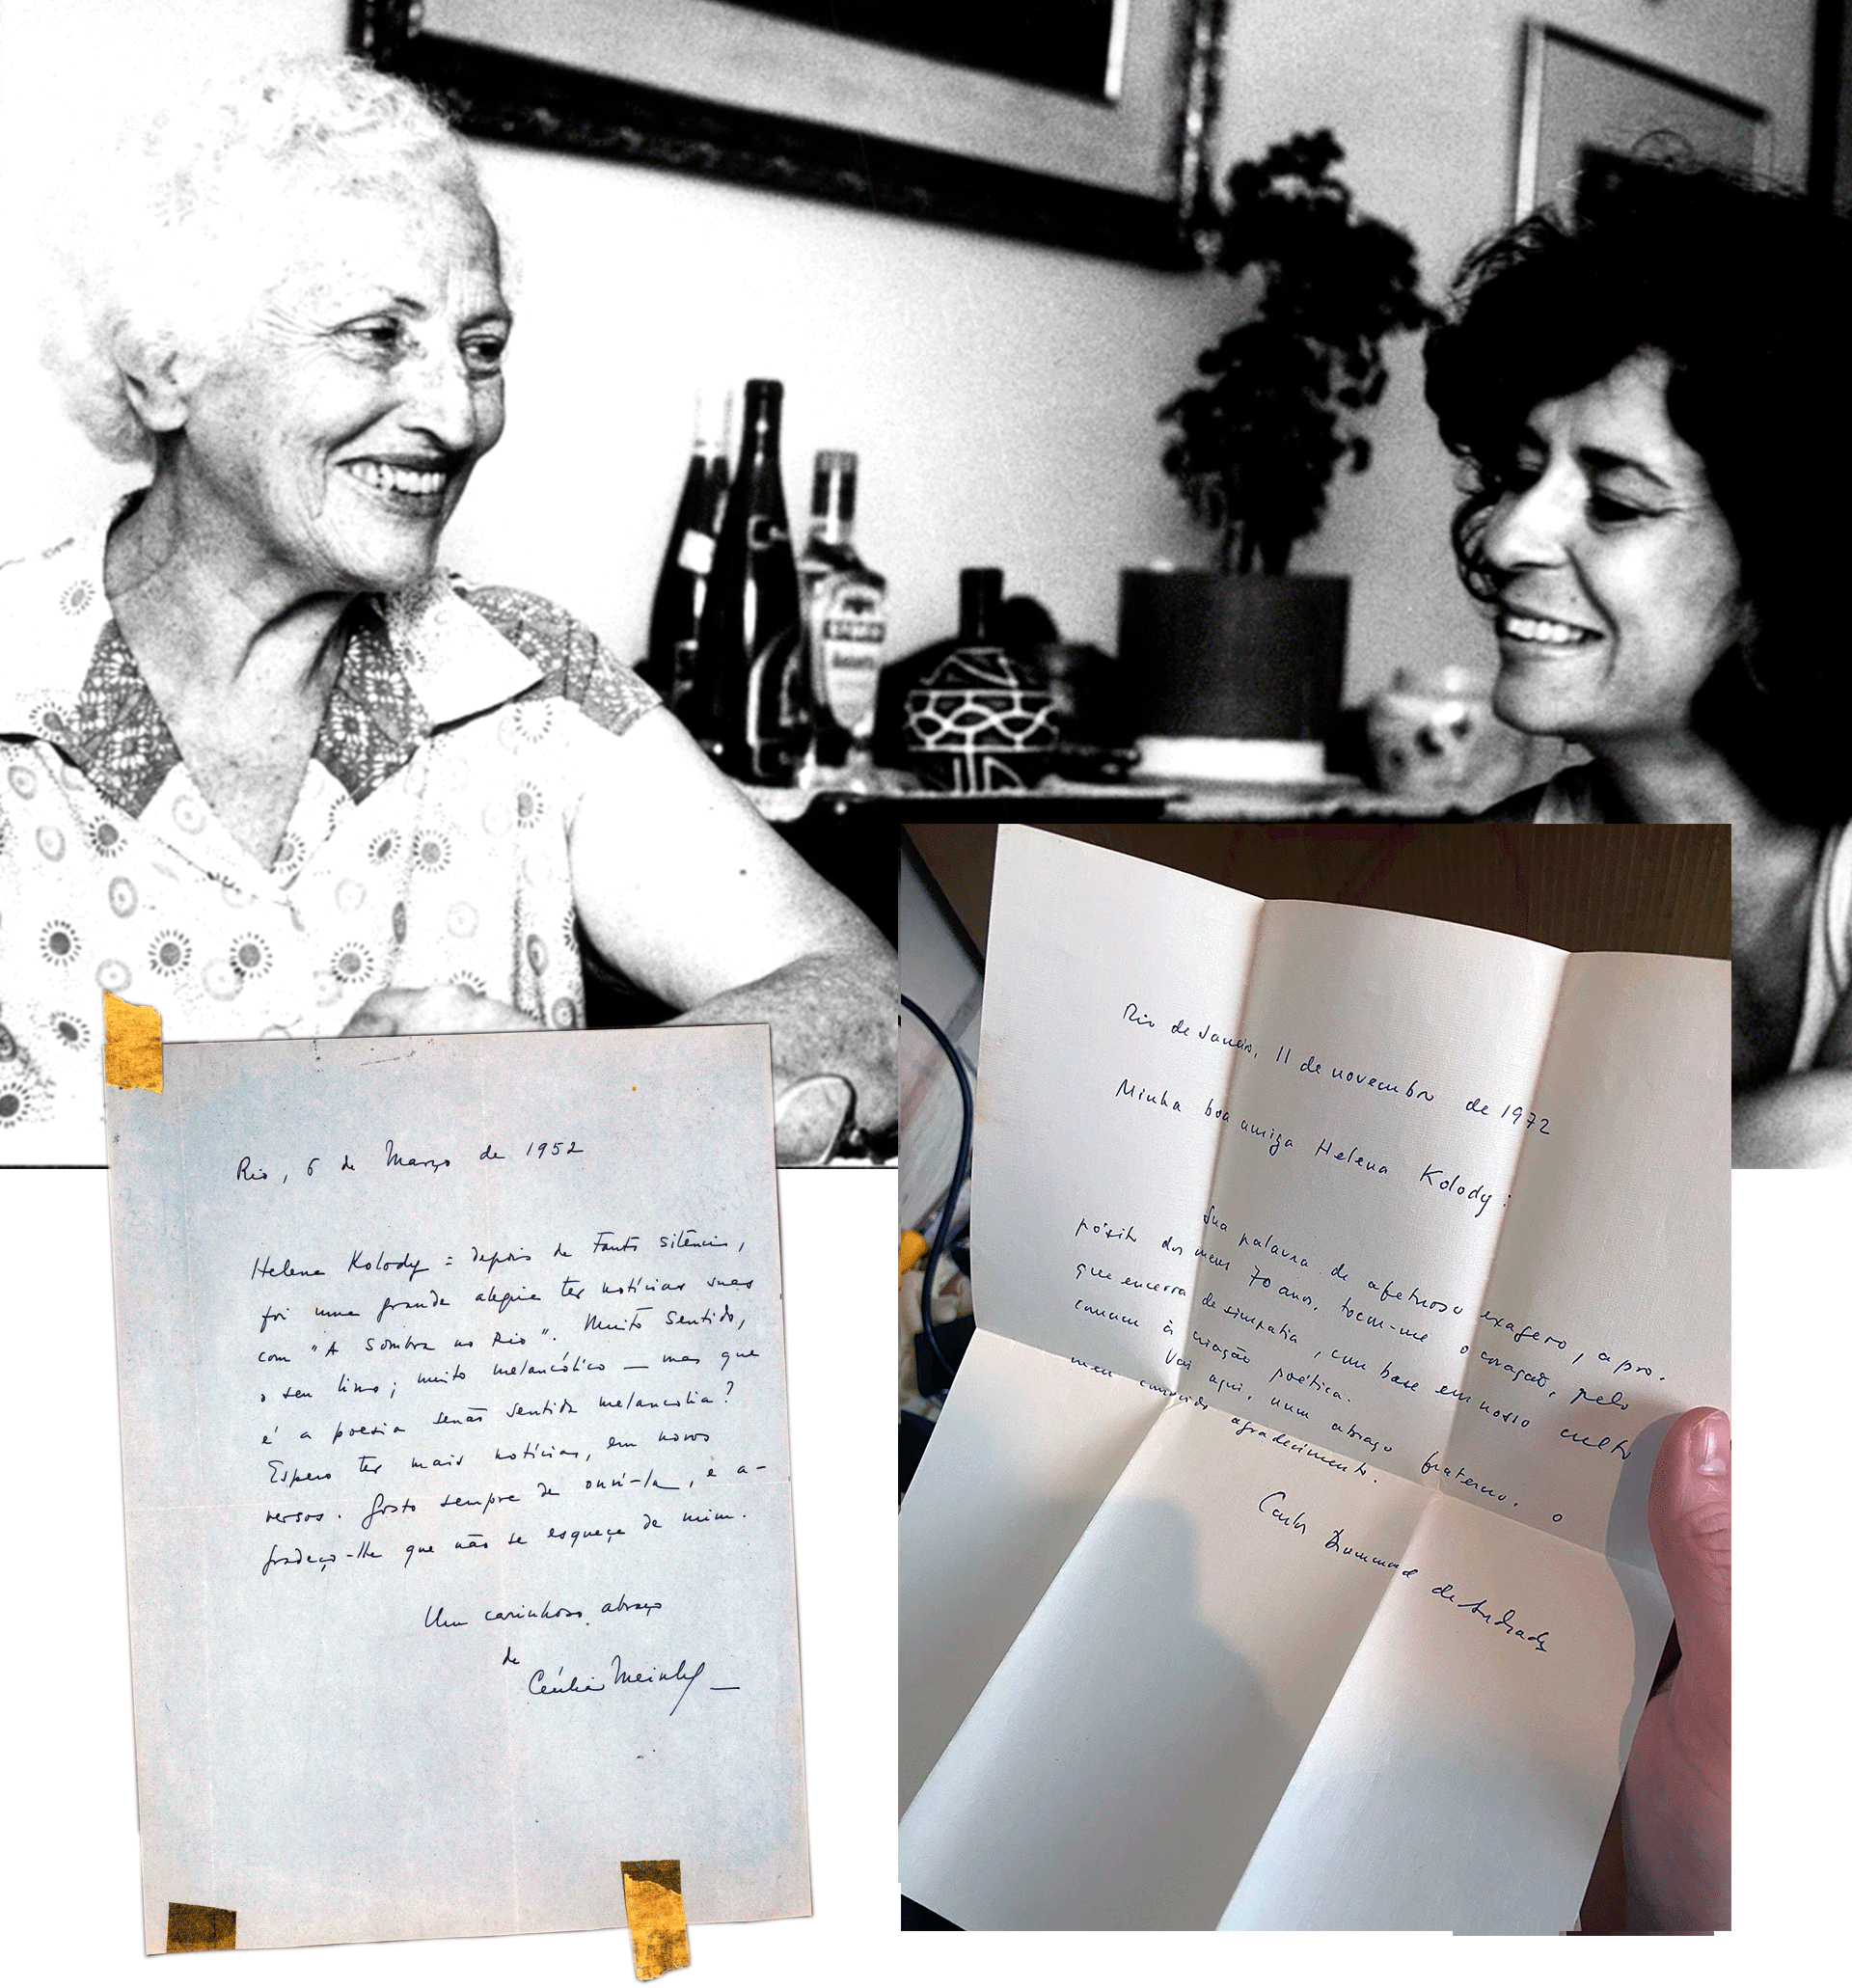 Rio, 6 de Março de 1952
Helena Kolody = depois de tanto silêncio,
foi uma grande alegria ter notícias suas
com "A Sombra no Rio". Muito sentido,
o seu livro; muito melancólico — mas que
é a poesia senão sentida melancolia?
Espero ter mais notícias, em novos
versos. Gosto sempre de ouvi-la, e a-
gradeço-lhe que não se esqueça de mim.
Um carinhoso abraço
de
Cecília Meireles
Rio de Janeiro, 11 de novembro de 1972
Minha boa amiga Helena Kolody:
Sua palavra de afetuoso exagero, a pro-
pósito dos meus 70 anos, tocou-me o coração, pelo
que encerra de simpatia, com base em nosso culto
comum à criação poética.
Vai aqui, num abraço fraterno, o
meu comovido agradecimento.
Carlos Drummond de Andrade